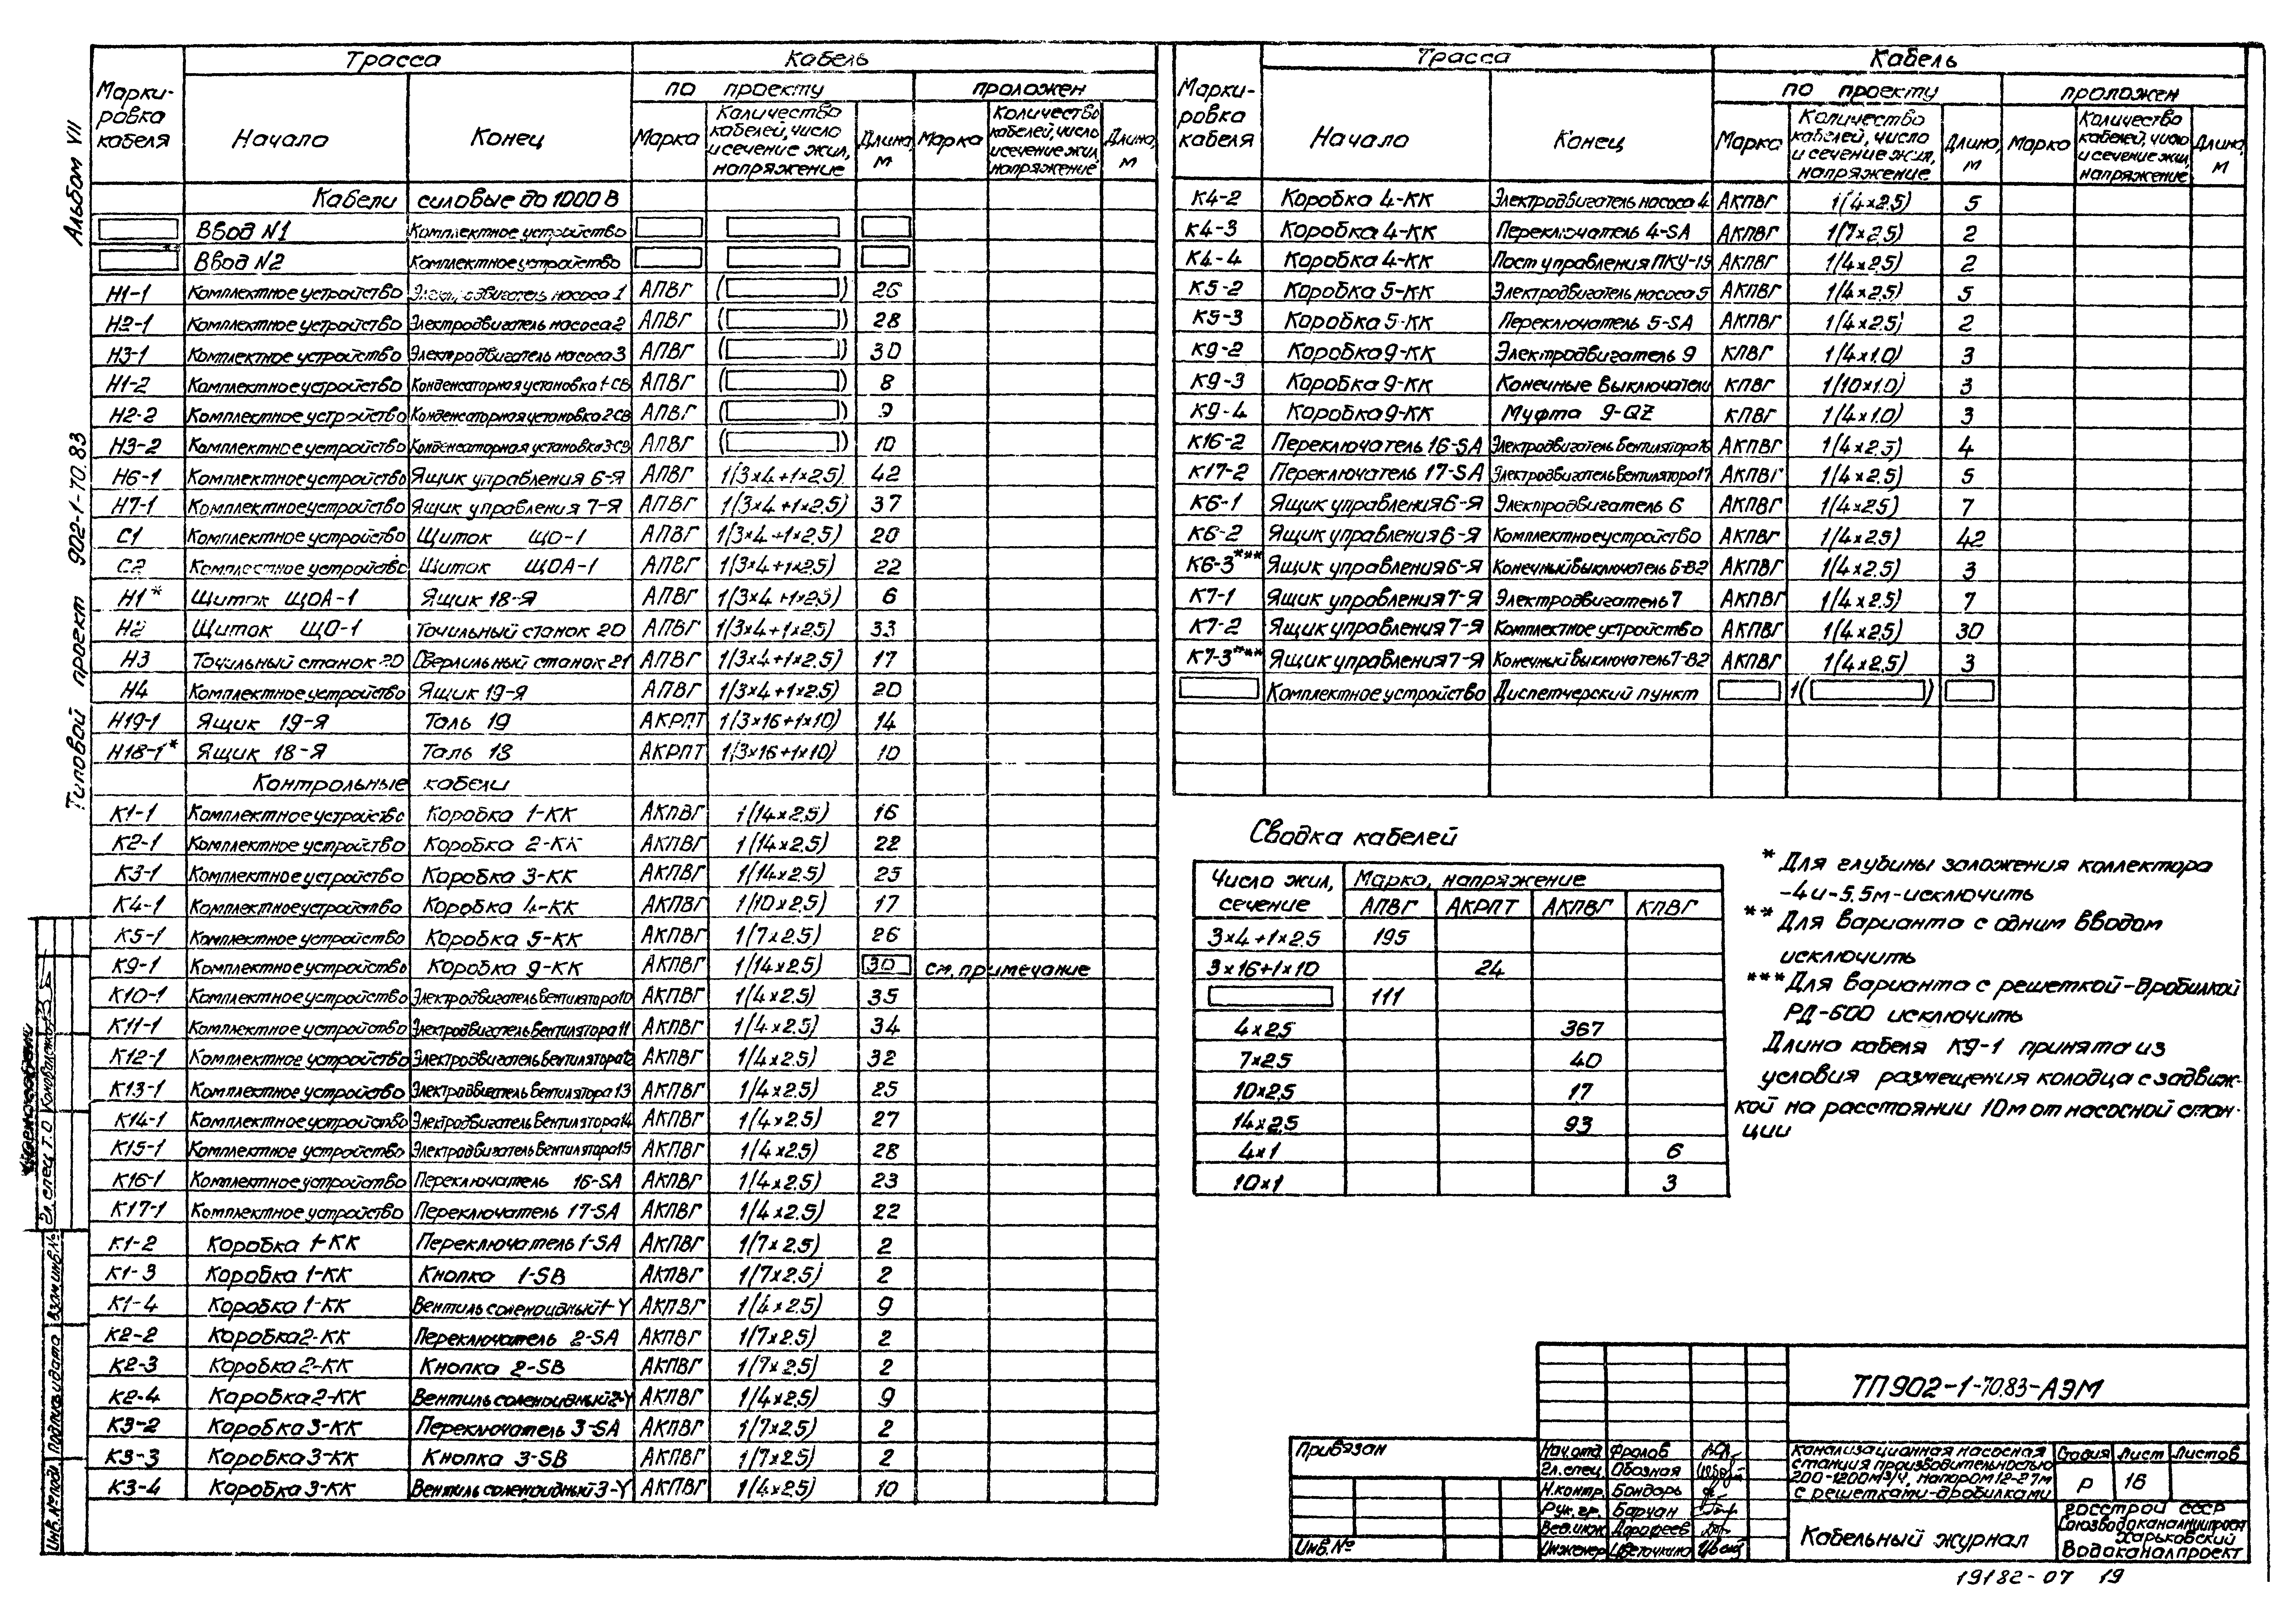 Альбом VII
Типовой проект 902-1-70.83
Марки-
ровка
кабеля
Трасса
Кабель
Начало
Конец
по проекту
проложен
Марка
Количество
кабелей, число
и сечение жил,
напряжение
Длина,
м
Марка
Количество
кабелей, число
и сечение жил,
напряжение
Длина,
м
Кабели силовые до 1000 В
Ввод N1 Комплектное устройство
** Ввод N2 Комплектное устройство
Н1-1 Комплектное устройство Электродвигатель насоса 1 АПВГ ( ) 26
Н2-1 Комплектное устройство Электродвигатель насоса 2 АПВГ ( ) 28
Н3-1 Комплектное устройство Электродвигатель насоса 3 АПВГ ( ) 30
Н1-2 Комплектное устройство Конденсаторная установка 1-СВ АПВГ ( ) 8
Н2-2 Комплектное устройство Конденсаторная установка 2СВ АПВГ ( ) 9
Н3-2 Комплектное устройство Конденсаторная установка 3СВ АПВГ ( ) 10
Н6-1 Комплектное устройство Ящик управления 6-Я АПВГ 1(3×4+1×2,5) 42
Н7-1 Комплектное устройство Ящик управления 7-Я АПВГ 1(3×4+1×2,5) 37
С1 Комплектное устройство Щиток ЩО-1 АПВГ 1(3×4+1×2,5) 20
С2 Комплектное устройство Щиток ЩОА-1 АПВГ 1(3×4+1×2,5) 22
Н1* Щиток ЩОА-1 Ящик 18-Я АПВГ 1(3×4+1×2,5) 6
Н2 Щиток ЩО-1 Точильный станок 20 АПВГ 1(3×4+1×2,5) 33
Н3 Точильный станок 20 Сверлильный станок 21 АПВГ 1(3×4+1×2,5) 17
Н4 Комплектное устройство Ящик 19-Я АПВГ 1(3×4+1×2,5) 20
Н19-1 Ящик 19-Я Таль 19 АКРПТ 1(3×16+1×10) 14
Н18-1* Ящик 18-Я Таль 18 АКРПТ 1(3×16+1×10) 10
Контрольные кабели
К1-1 Комплектное устройство Коробка 1-КК АКПВГ 1(14×2,5) 16
К2-1 Комплектное устройство Коробка 2-КК АКПВГ 1(14×2,5) 22
К3-1 Комплектное устройство Коробка 3-КК АКПВГ 1(14×2,5) 25
К4-1 Комплектное устройство Коробка 4-КК АКПВГ 1(10×2,5) 17
К5-1 Комплектное устройство Коробка 5-КК АКПВГ 1(7×2,5) 26
К9-1 Комплектное устройство Коробка 9-КК АКПВГ 1(14×2,5) 30 см. примечание
К10-1 Комплектное устройство Электродвигатель вентилятора 10 АКПВГ 1(4×2,5) 35
К11-1 Комплектное устройство Электродвигатель вентилятора 11 АКПВГ 1(4×2,5) 34
К12-1 Комплектное устройство Электродвигатель вентилятора 12 АКПВГ 1(4×2,5) 32
К13-1 Комплектное устройство Электродвигатель вентилятора 13 АКПВГ 1(4×2,5) 25
К14-1 Комплектное устройство Электродвигатель вентилятора 14 АКПВГ 1(4×2,5) 27
К15-1 Комплектное устройство Электродвигатель вентилятора 15 АКПВГ 1(4×2,5) 28
К16-1 Комплектное устройство Переключатель 16-SA АКПВГ 1(4×2,5) 23
К17-1 Комплектное устройство Переключатель 17-SA АКПВГ 1(4×2,5) 22
К1-2 Коробка 1-КК Переключатель 1-SA АКПВГ 1(7×2,5) 2
К1-3 Коробка 1-КК Кнопка 1-SB АКПВГ 1(7×2,5) 2
К1-4 Коробка 1-КК Вентиль соленоидный 1-Y АКПВГ 1(4×2,5) 9
К2-2 Коробка 2-КК Переключатель 2-SA АКПВГ 1(7×2,5) 2
К2-3 Коробка 2-КК Кнопка 2-SB АКПВГ 1(7×2,5) 2
К2-4 Коробка 2-КК Вентиль соленоидный 2-Y АКПВГ 1(4×2,5) 9
К3-2 Коробка 3-КК Переключатель 3-SA АКПВГ 1(7×2,5) 2
К3-3 Коробка 3-КК Кнопка 3-SB АКПВГ 1(7×2,5) 2
К3-4 Коробка 3-КК Вентиль соленоидный 3-Y АКПВГ 1(4×2,5) 10
Марки-
ровка
кабеля
Трасса
Кабель
Начало
Конец
по проекту
проложен
Марка
Количество
кабелей, число
и сечение жил,
напряжение
Длина,
м
Марка
Количество
кабелей, число
и сечение жил,
напряжение
Длина,
м
К4-2 Коробка 4-КК Электродвигатель насоса 4 АКПВГ 1(4×2,5) 5
К4-3 Коробка 4-КК Переключатель 4-SA АКПВГ 1(7×2,5) 2
К4-4 Коробка 4-КК Пост управления ПКУ-15 АКПВГ 1(4×2,5) 2
К5-2 Коробка 5-КК Электродвигатель насоса 5 АКПВГ 1(4×2,5) 5
К5-3 Коробка 5-КК Переключатель 5-SA АКПВГ 1(4×2,5) 2
К9-2 Коробка 9-КК Электродвигатель 9 КПВГ 1(4×1,0) 3
К9-3 Коробка 9-КК Конечные выключатели КПВГ 1(10×1,0) 3
К9-4 Коробка 9-КК Муфта 9-QZ КПВГ 1(4×1,0) 3
К16-2 Переключатель 16-SA Электродвигатель вентилятора 16 АКПВГ 1(4×2,5) 4
К17-2 Переключатель 17-SA Электродвигатель вентилятора 17 АКПВГ 1(4×2,5) 5
К6-1 Ящик управления 6-Я Электродвигатель 6 АКПВГ 1(4×2,5) 7
К6-2 Ящик управления 6-Я Комплектное устройство АКПВГ 1(4×2,5) 42
К6-3*** Ящик управления 6-Я Конечный выключатель 6-В2 АКПВГ 1(4×2,5) 3
К7-1 Ящик управления 7-Я Электродвигатель 7 АКПВГ 1(4×2,5) 7
К7-2 Ящик управления 7-Я Комплектное устройство АКПВГ 1(4×2,5) 30
К7-3*** Ящик управления 7-Я Конечный выключатель 7-В2 АКПВГ 1(4×2,5) 3
Комплектное устройство Диспетчерский пункт 1( )
Сводка кабелей
Число жил,
сечение
Марка, напряжение
АПВГ АКРПТ АКПВГ КПВГ
3×4+1×2,5 195
3×16+1×10 24
111
4×2,5 367
7×2,5 40
10×2,5 17
14×2,5 93
4×1 6
10×1 3
* Для глубины заложения коллектора
-4 и -5,5м - исключить
** Для варианта с одним вводом
исключить
*** Для варианта с решеткой-дробилкой
РД-600 исключить
Длина кабеля К9-1 принята из
условия размещения колодца с задвиж-
кой на расстоянии 10м от насосной стан-
ции
Гл. спец. Т.О.
Взам. инв. №
Подпись и дата
Инв. № подл.
Привязан
Инв. №
Нач. отд. Фролов
Гл. спец. Обозная
Н. контр. Бондарь
Рук. гр. Барчан
Вед. инж. Дорофеев
Инженер Цветочкина
ТП 902-1-70.83-АЭМ
Канализационная насосная
станция производительностью
200-1200м³/ч, напором 12-27м
с решетками-дробилками
Стадия Лист Листов
Р 16
Кабельный журнал
Госстрой СССР
Союзводоканалниипроект
Харьковский
Водоканалпроект
19182-07 19